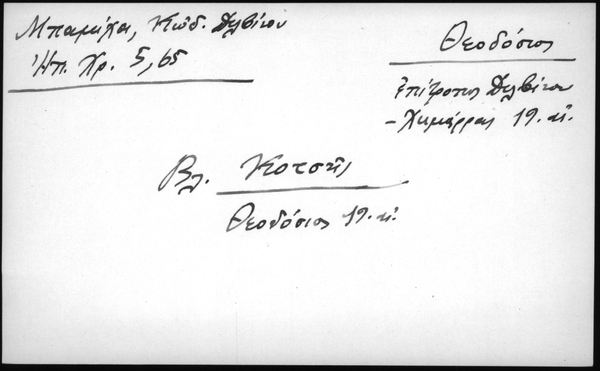 Μπαμίχα, Κώδ. Δελβίνου
Ἠπ. Χρ. 5, 65
Θεοδόσιος
ἐπίτροπος Δελβίνου
– Χιμάρρας 19. αἰ.
Βλ. Κοτσῆς
Θεοδόσιος 19. αἰ.